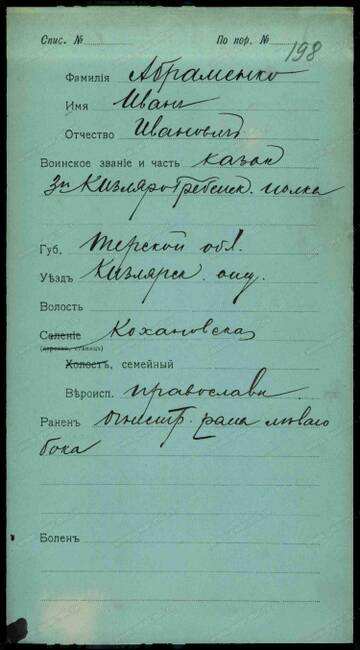 Спис. № По пор. № 198
Фамилія Абраменко
Имя Иванъ
Отчество Ивановъ
Воинское званіе и часть казак
3 п. Кизляро Гребенск. полка
Губ. Терской обл.
Уѣздъ Кизлярск. отд.
Волость
Саленіе Кохановская
(деревня, станица)
Холостъ, семейный
Вѣроисп. православн.
Раненъ огнестр. рана лѣваго
бока
Боленъ